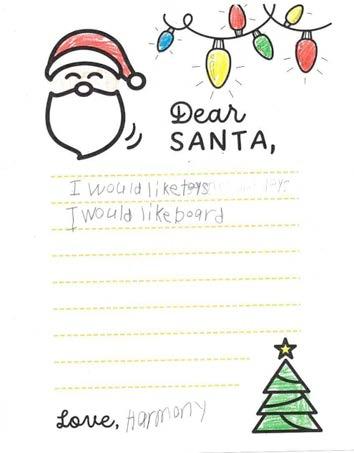 Dear
SANTA,
I would like toys
I would like board
Love, Harmony